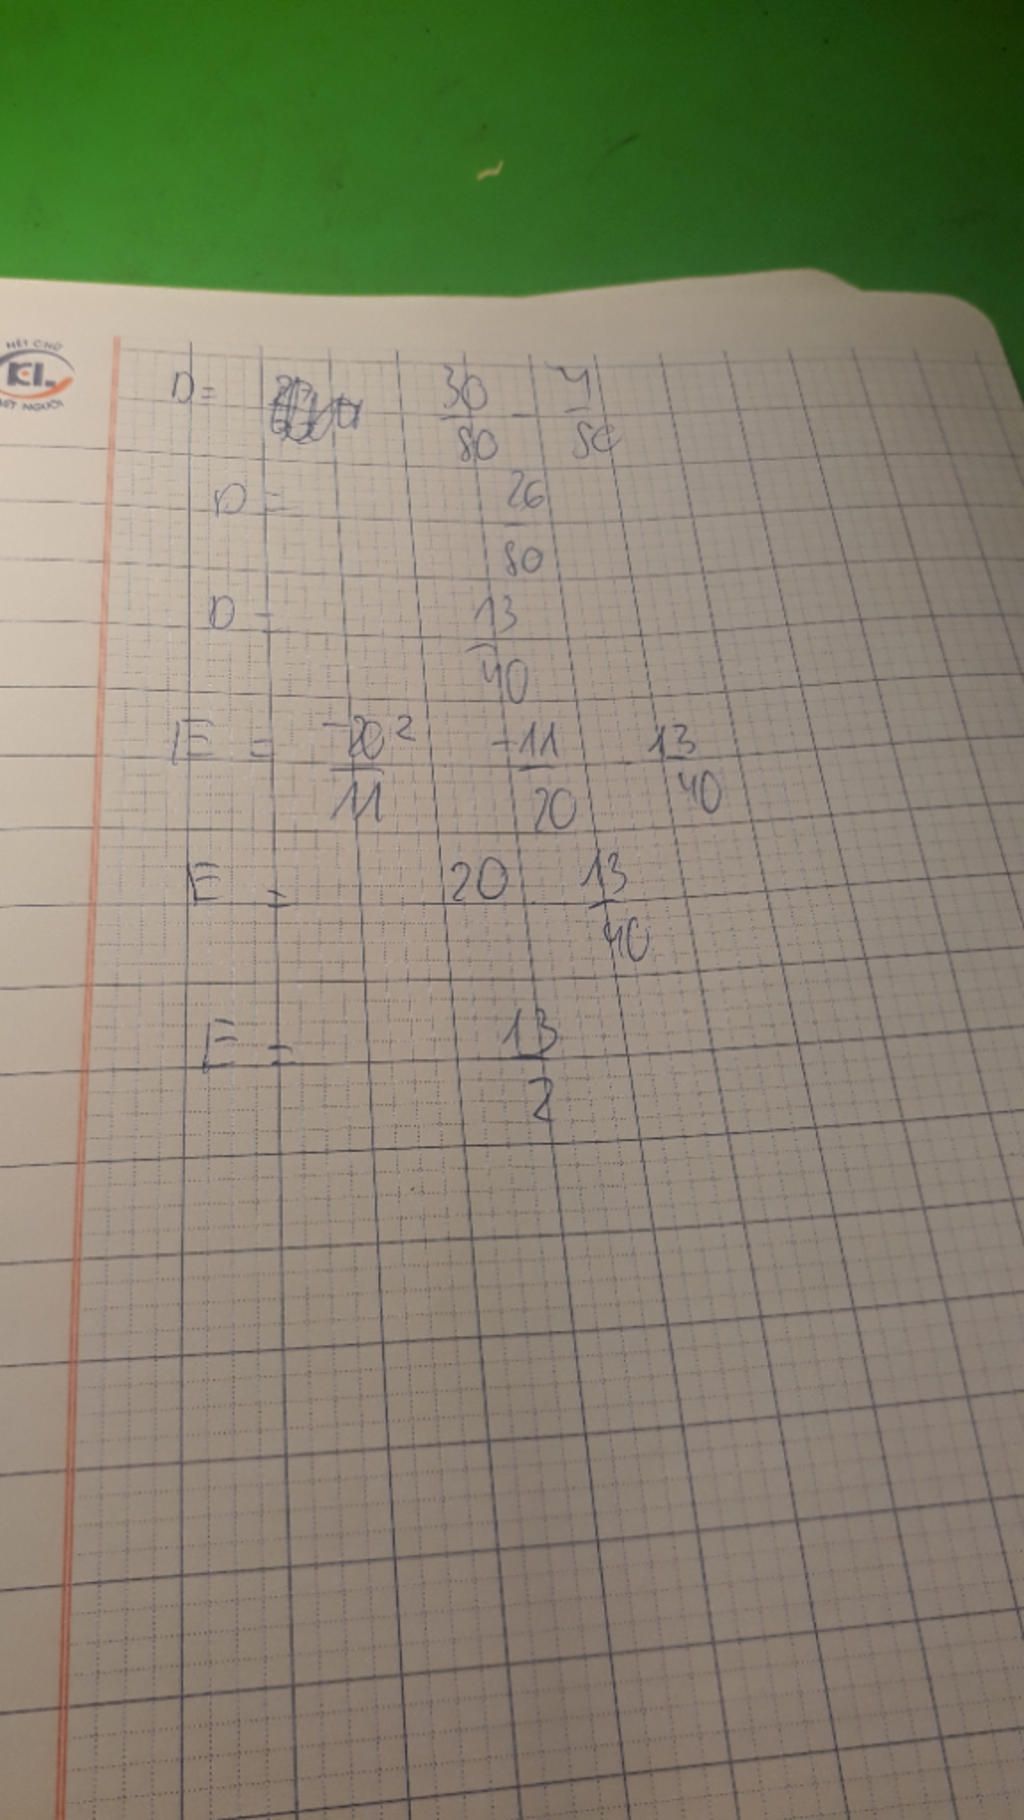 HẾT CHỮ
KL
HẾT NGƯỜI
D = 30/80 - 4/80
D = 26/80
D = 13/40
E = -20²/11 -11/20 13/40
E = 20 13/40
E = 13/2